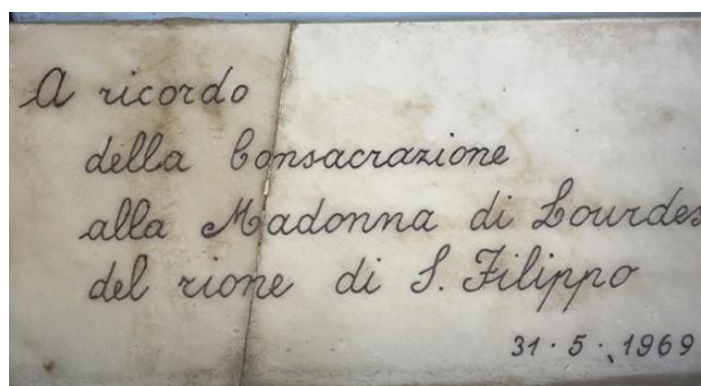 A ricordo
della Consacrazione
alla Madonna di Lourdes
del rione di S. Filippo
31 · 5 · 1969